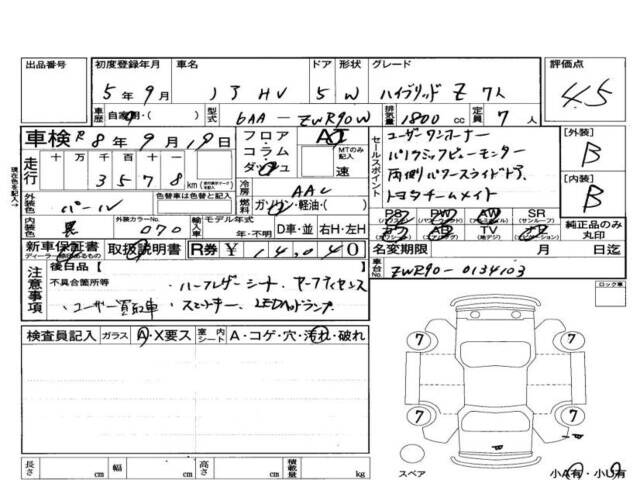 出品番号 初度登録年月 車名 ドア 形状 グレード 評価点
5年9月 ノア HV 5 W ハイブリッド Z 7人 4.5
車歴 自家用・( ) 型式 6AA-ZWR90W 排気量 1800 cc 定員 7人
車検 R8年9月19日 フロア AT
コラム MTのみ記入
ダッシュ 速
セールスポイント ユーザーワンオーナー
パノラミックビューモニター
両側パワースライドドア
トヨタチームメイト
[外装] B
[内装] B
現在色を記入→
走行 十万 万 千 百 十 一
3 5 7 8 km
外装色 パール 色替車は色替前の色
冷房 AAC
燃料 ガソリン・軽油・( )
内装色 黒 外装カラーNo. 070 輸入車 モデル年式 年・不明 D車・並 右H・左H
PS PW AW SR (サンルーフ)
TV (ナビ)
純正品のみ丸印
新車保証書 取扱説明書 R券 ¥ 14,040
ディーラー
名変期限 月 日迄
車台No. ZWR90-0134103
注意事項 後日品【 】
不具合箇所等
・ハーフレザーシート セーフティセンス
・ユーザー買取車 ・スマートキー LEDヘッドランプ
ロック車
検査員記入 ガラス A・X要ス 室内シート A・コゲ・穴・汚れ・破れ
7 7
7 7
スペア
小A有・小U有
長さ cm 幅 cm 高さ cm 積載量 kg